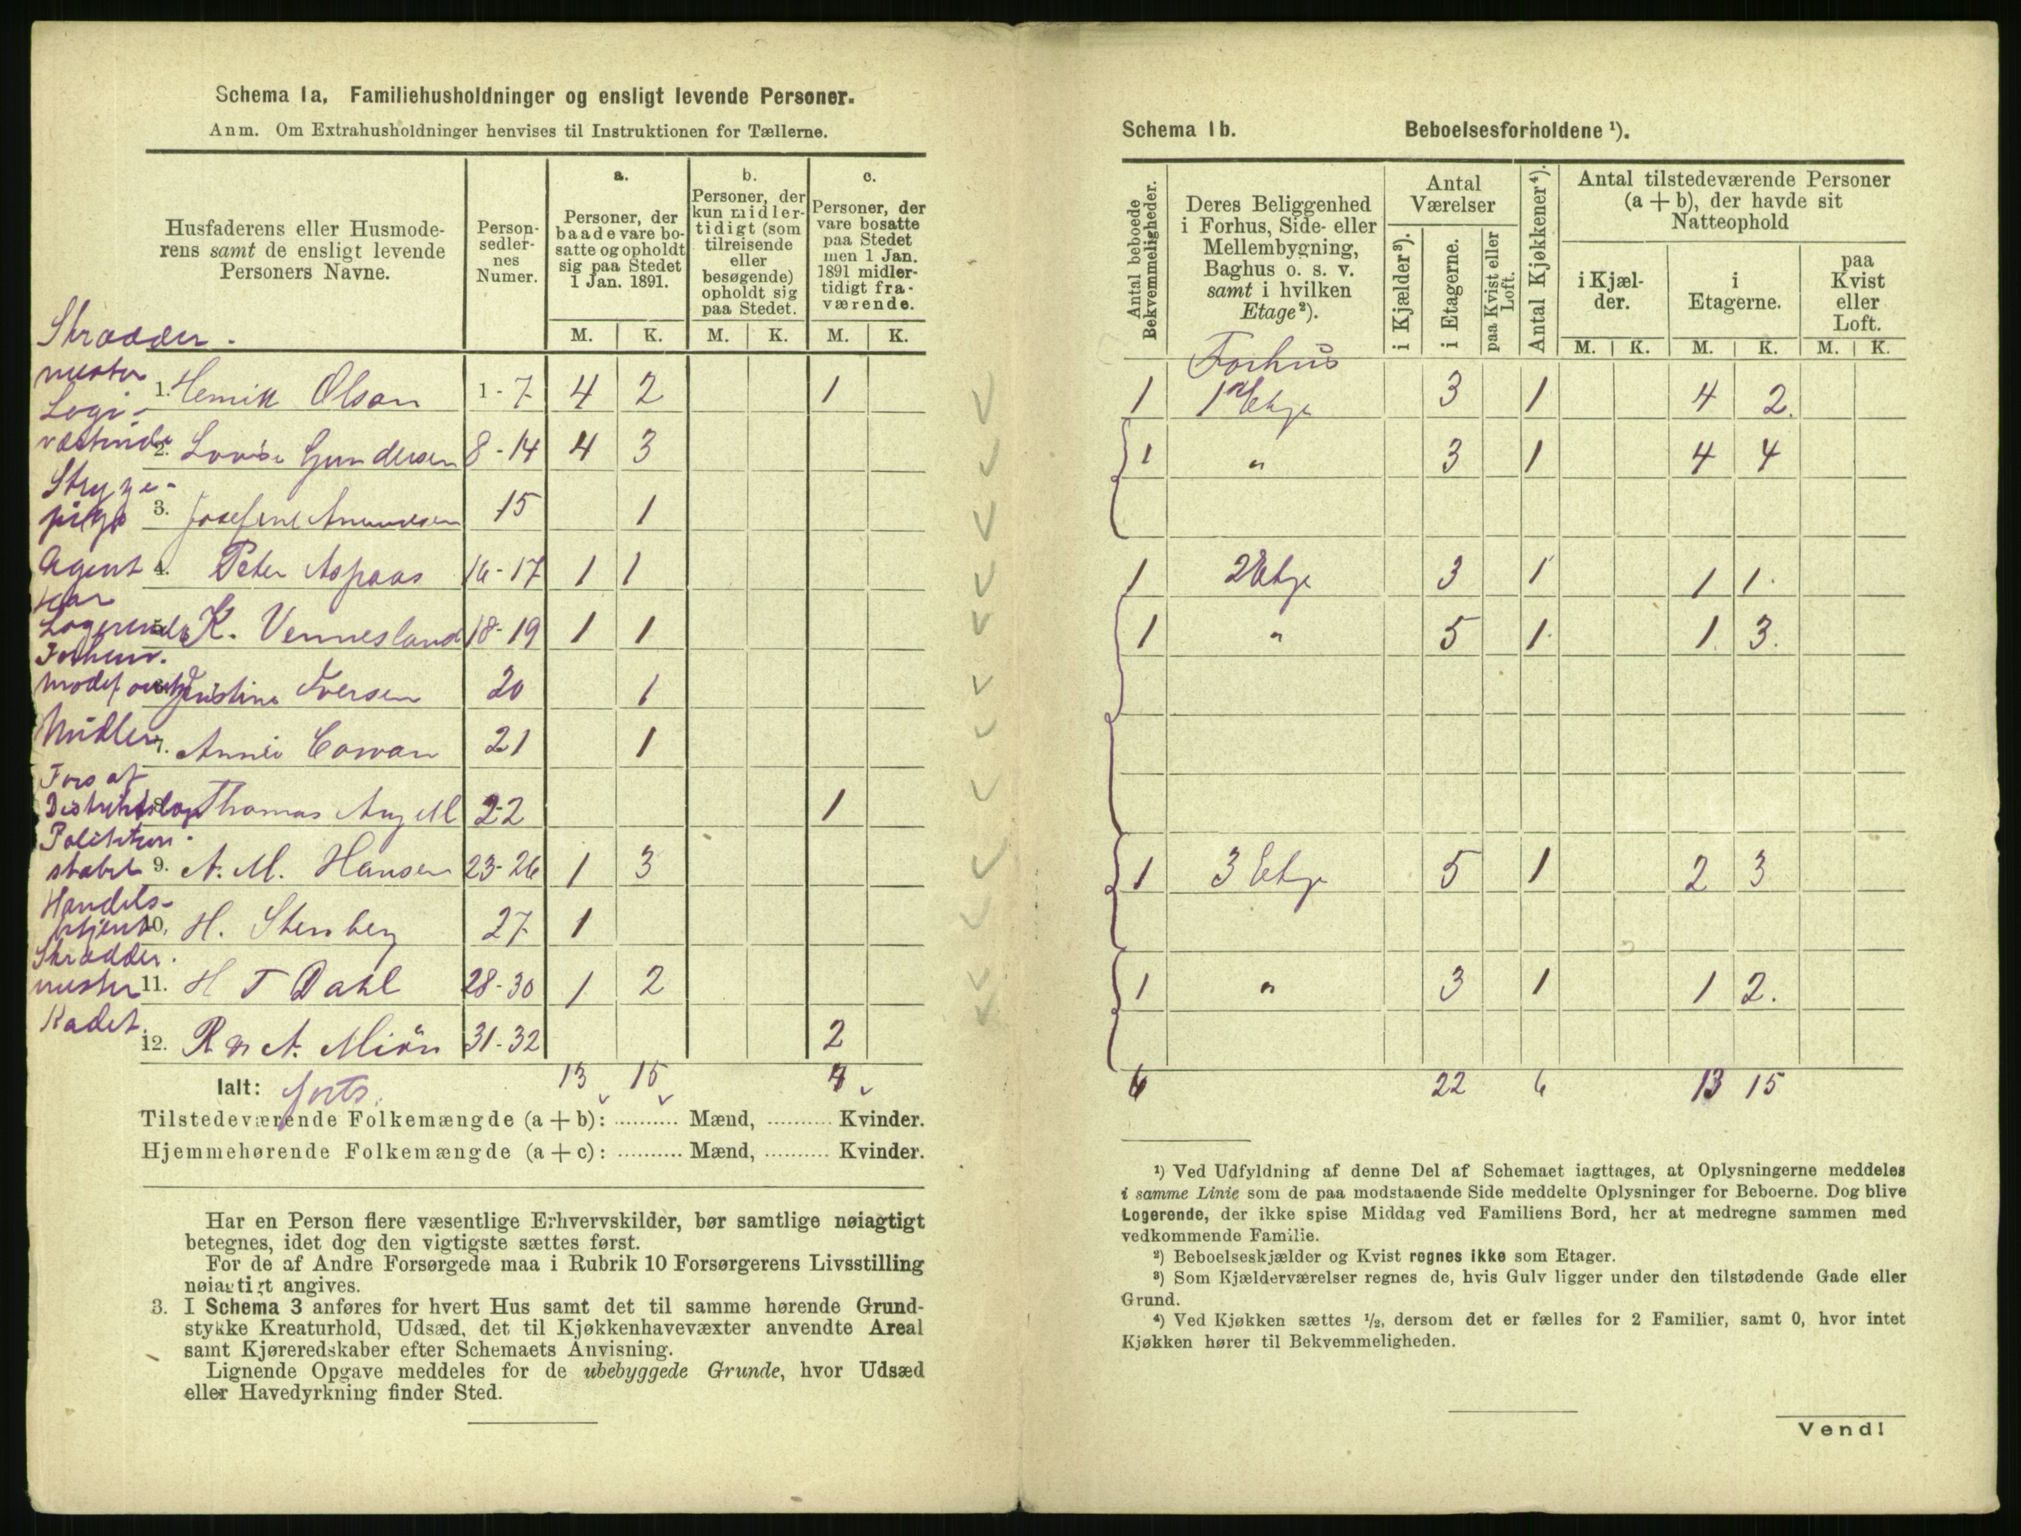 Schema 1a, Familiehusholdninger og ensligt levende Personer.
Anm. Om Extrahusholdninger henvises til Instruktionen for Tællerne.
Husfaderens eller Husmoderens samt de ensligt levende Personers Navne.
Personsedlernes Numer.
a. Personer, der baade vare bosatte og opholdt sig paa Stedet 1 Jan. 1891.
b. Personer, der kun midlertidigt (som tilreisende eller besøgende) opholdt sig paa Stedet.
c. Personer, der vare bosatte paa Stedet men 1 Jan. 1891 midlertidigt fraværende.
M. K. M. K. M. K.
Skrædder-
mester 1. Henrik Olsen 1-7 4 2 1
Logi-
værtinde 2. Lovise Gundersen 8-14 4 3
Stryge-
pige 3. Josefine Amundsen 15 1
Agent 4. Peter Aspaas 16-17 1 1
Har
Logerende 5. K. Vennesland 18-19 1 1
Forhenv.
6. Kristine Iversen 20 1
Midler 7. Annie Cowan 21 1
Fors af
8. Thomas Angell 22 1
Politikon-
stabel 9. A. M. Hansen 23-26 1 3
Handels-
betjent 10. H. Stenberg 27 1
Skrædder-
mester 11. H T Dahl 28-30 1 2
Kadet. 12. R og A. Miøn 31-32 2
Ialt: forts. 13 15 4
Tilstedeværende Folkemængde (a + b): .......... Mænd, .......... Kvinder.
Hjemmehørende Folkemængde (a + c): .......... Mænd, .......... Kvinder.
Har en Person flere væsentlige Erhvervskilder, bør samtlige nøiagtigt
betegnes, idet dog den vigtigste sættes først.
For de af Andre Forsørgede maa i Rubrik 10 Forsørgerens Livsstilling
nøiagtigt angives.
3. I Schema 3 anføres for hvert Hus samt det til samme hørende Grund-
stykke Kreaturhold, Udsæd, det til Kjøkkenhavevæxter anvendte Areal
samt Kjøreredskaber efter Schemaets Anvisning.
Lignende Opgave meddeles for de ubebyggede Grunde, hvor Udsæd
eller Havedyrkning finder Sted.
Schema 1b. Beboelsesforholdene ¹).
Antal beboede Bekvemmeligheder.
Deres Beliggenhed i Forhus, Side- eller Mellembygning, Baghus o. s. v. samt i hvilken Etage²).
Antal Værelser
i Kjælder³).
i Etagerne.
paa Kvist eller Loft.
Antal Kjøkkener⁴).
Antal tilstedeværende Personer (a + b), der havde sit Natteophold
i Kjælder.
i Etagerne.
paa Kvist eller Loft.
M. K. M. K. M. K.
Forhus
1 1ⁿ Etage 3 1 4 2.
1 " 3 1 4 4
1 2 Etge 3 1 1 1.
1 " 5 1 1. 3.
1 3 Etge 5 1 2 3
1 " 3 1 1 2.
6 22 6 13 15
¹) Ved Udfyldning af denne Del af Schemaet iagttages, at Oplysningerne meddeles
i samme Linie som de paa modstaaende Side meddelte Oplysninger for Beboerne. Dog blive
Logerende, der ikke spise Middag ved Familiens Bord, her at medregne sammen med
vedkommende Familie.
²) Beboelseskjælder og Kvist regnes ikke som Etager.
³) Som Kjælderværelser regnes de, hvis Gulv ligger under den tilstødende Gade eller
Grund.
⁴) Ved Kjøkken sættes ½, dersom det er fælles for 2 Familier, samt 0, hvor intet
Kjøkken hører til Bekvemmeligheden.
Vend!